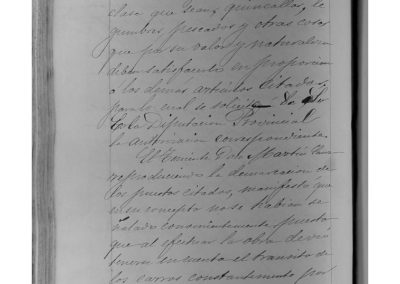 clase que sean, quincallas, le
gumbres, pescados y otras cosas
que por su valor y naturaleza
deban satisfacerlo en proporcion
a los demas articulos citados
para lo cual se solicite de la
Excla Diputacion Provincial
la autorizacion correspondiente.
El Teniente D. Martin
reproduciendo la demarcacion de
los puestos citados, manifestó que
en su concepto no se habian se
ñalado convenientemente puesto
que al efectuar la obra devió
tenerse en cuenta el transito de
los carros constantemente por